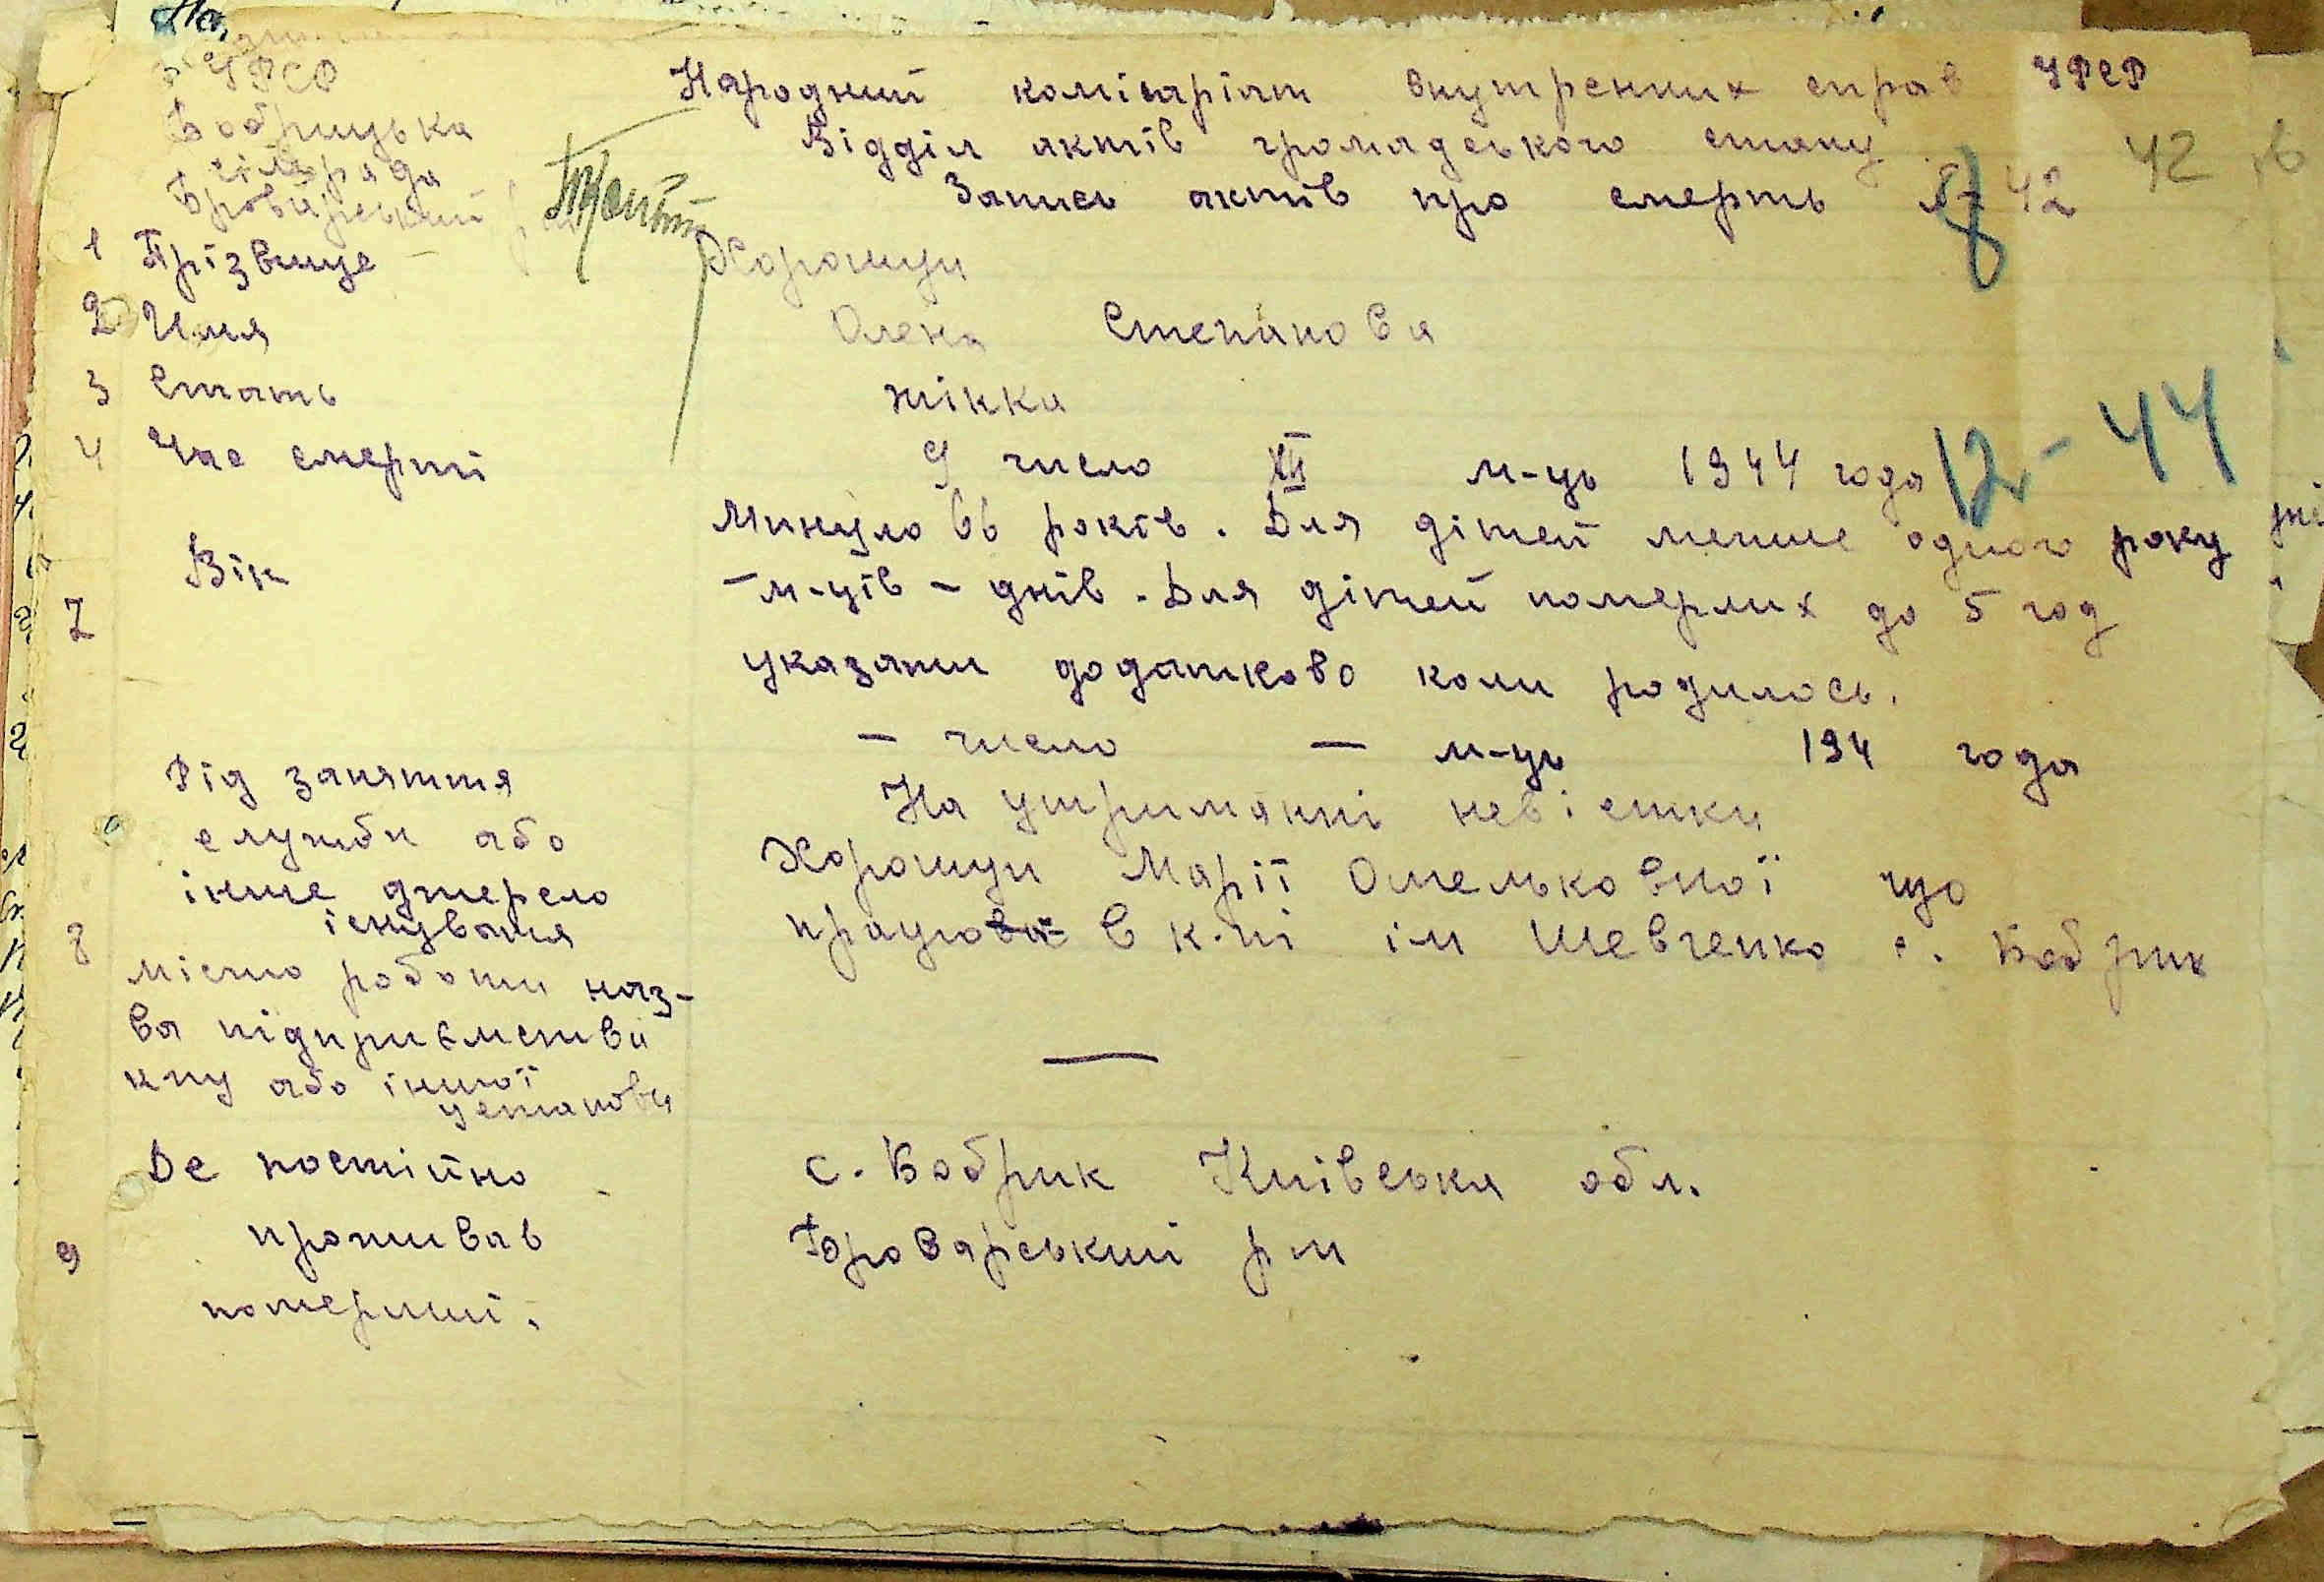 УРСР
Бобрицька
сільрада
Броварський
Народний комісаріат внутренних справ УРСР
Відділ актів громадського стану
Запись актів про смерть № 42
42
1 Прізвище
Хорошун
2 Имя
Олена Степанова
3 Стать
жінка
4 Час смерті
9 число XII м-ць 1944 года
12-44
Вік
Минуло 66 років. Для дітей менше одного року
- м-ців - днів. Для дітей померлих до 5 год
7
указати додатково коли родилось.
- число — м-ць 194 года
Рід заняття
служби або
інше джерело
існування
На утриманні невістки
Хорошун Марії Омельковної що
працює в к-пі ім Шевченко с. Бобрик
8
місто роботи наз-
ва підприємства
кпу або іншої
установи
—
Де постійно
проживав
9
померший.
с. Бобрик Київська обл.
Броварський р-н